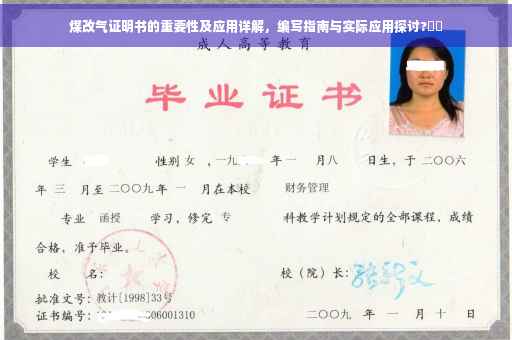 煤改气证明书的重要性及应用详解，编写指南与实际应用探讨?
成人高等教育
毕业证书
学生 性别 女 ，一九 年 一 月八 日生，于 二〇〇六
年 三 月至 二〇〇九 年 一 月在本校 财务管理
专业 函授 学习，修完 专 科教学计划规定的全部课程，成绩
合格，准予毕业。
校 名： 校（院）长：
批准文号：教计[1998]33号
证书编号： 06001310 二〇〇九 年 一 月 十 日